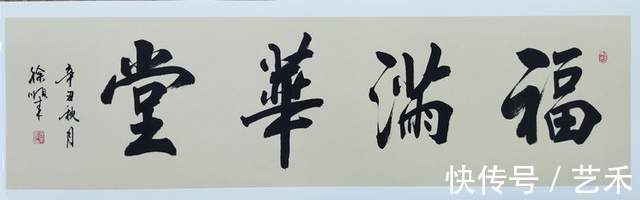 福滿華堂
辛丑秋月
徐順來
快传号/艺禾